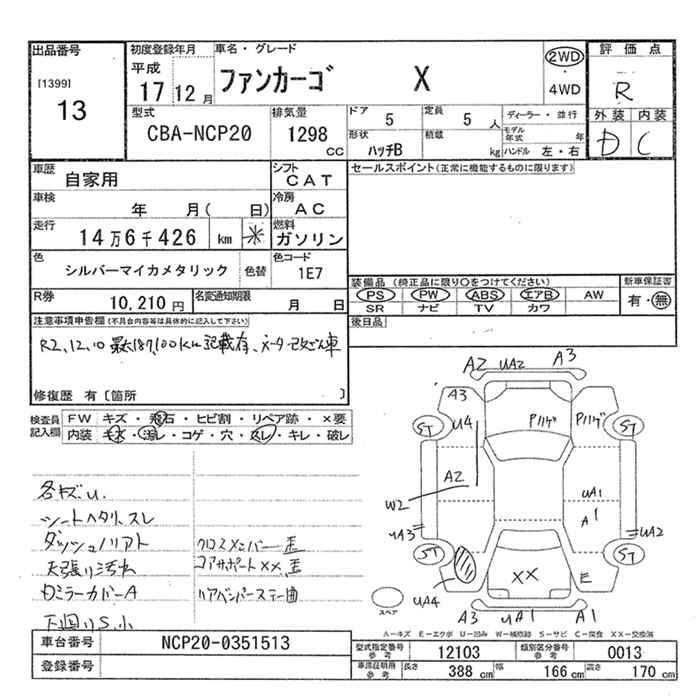 出品番号 初度登録年月 車名・グレード 評価点
[1399] 平成 ファンカーゴ X 2WD・4WD R
13 17 12月
型式 排気量 ドア 5 定員 5人 ディーラー・並行 外装 内装
CBA-NCP20 1298cc 形状 ハッチB 積載 kg モデル年式 年 ハンドル 左・右 D C
車歴 自家用 シフト CAT セールスポイント(正常に機能するものに限ります)
車検 年 月( 日) 冷房 AC
走行 14万6千426 km ※ 燃料 ガソリン
色 シルバーマイカメタリック 色替 色コード 1E7
装備品 (純正品に限り○をつけてください) 新車保証書
PS PW ABS エアB AW 有・無
SR ナビ TV カワ
R券 10,210円 名変通知期限 月 日
後日品
注意事項申告欄(不具合内容等は具体的に記入して下さい)
R2.12.10 最大187,100Km 記載有、メーター改ざん車
修復歴 有[箇所 ]
検査員記入欄 FW キズ・飛石・ヒビ割・リペア跡・×要
内装 モケ・汚レ・コゲ・穴・スレ・キレ・破レ
A2 UA2 A3
A3
U4 Pハゲ Pハゲ
ST ST
A2
W2 UA1
A1
UA3 UA2
ST ST
XX E
UA4
スペア
A3 UA1 A1
各キズU.
シートヘタリ、スレ
ダッシュノリアト
天張り汚れ
Dミラーカバー A
下廻りS小
クロスメンバー歪
コアサポートXX、歪
リアバンパーステー曲
A-キズ E-エクボ U-凹み W-補修跡 S-サビ C-腐食 XX-交換済
車台番号 NCP20-0351513
登録番号
型式指定番号 参考 12103 類別区分番号 参考 0013
車庫証明用 参考 長さ 388cm 幅 166cm 高さ 170cm